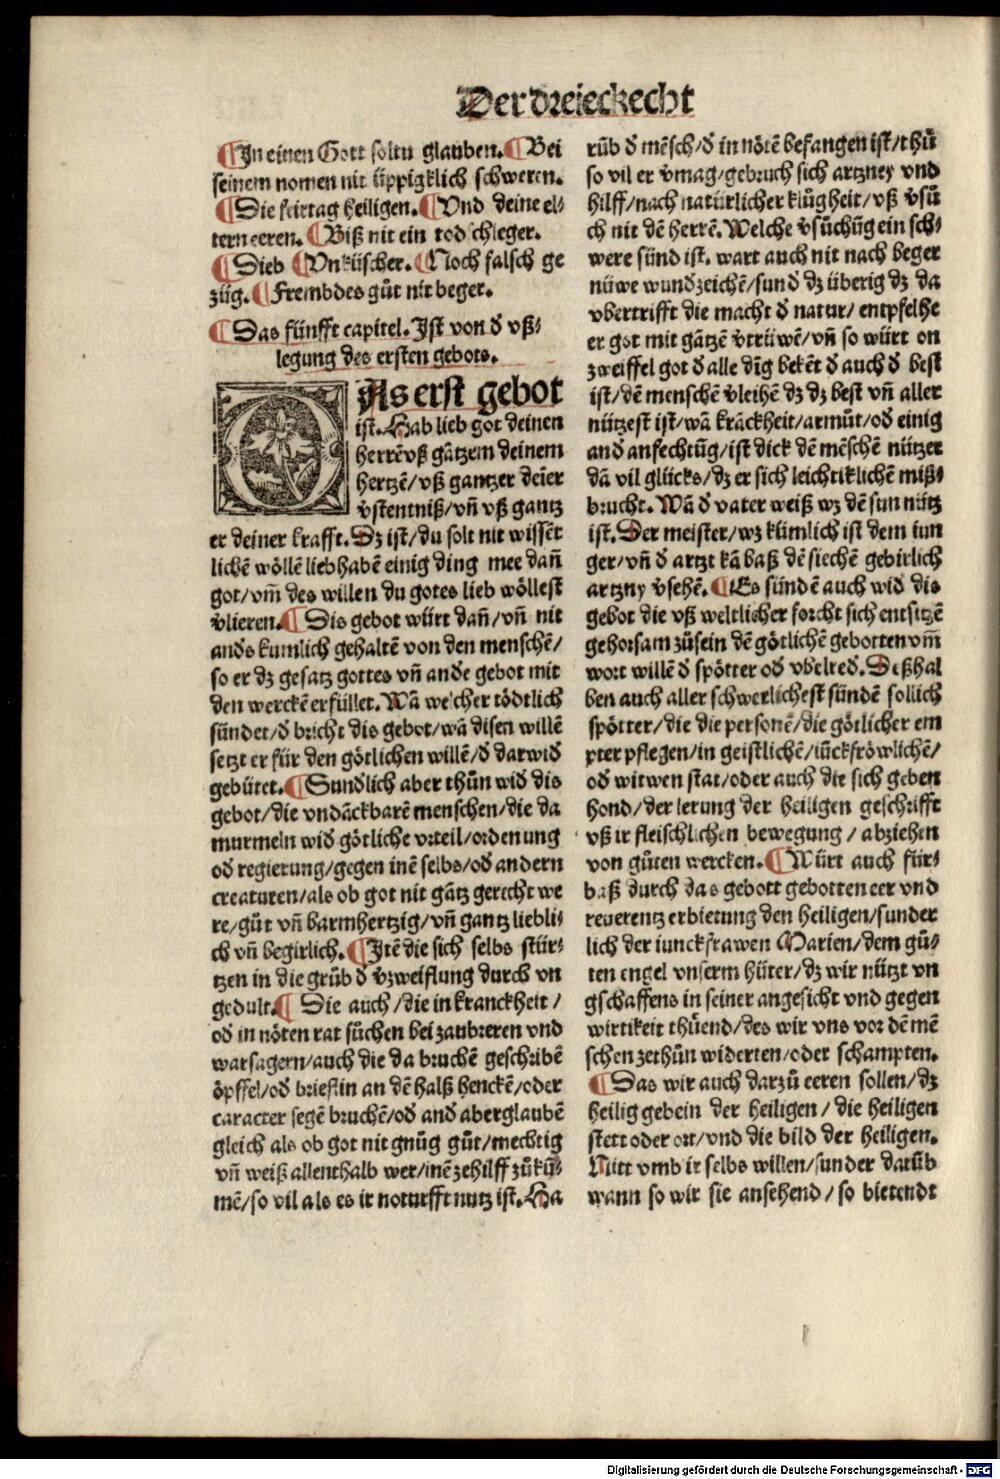 Der dreieckecht
¶In einen Gott soltu glauben. ¶Bei
seinem nomen nit üppigklich schweren.
¶Die feirtag heiligen. ¶Vnd deine el⸗
tern eeren. ¶Biß nit ein todschleger.
¶Dieb ¶Vnküscher. ¶Noch falsch ge
züg. ¶Frembdes gůt nit beger.
¶Das fünfft capitel. Ist von d̄ vß⸗
legung des ersten gebots.
DAs erst gebot
ist. Hab lieb got deinen
herrē vß gātzem deinem
hertzē/vß gantzer deīer
v̄stentniß/vn̄ vß gantz
er deiner krafft. Dz ist/du solt nit wissēt
lichē wöllē liebhabē einig ding mee dañ
got/vm̄ des willen du gotes lieb wöllest
v̄lieren. ¶Dis gebot würt dañ/vn̄ nit
anđs kumlich gehaltē von den menschē/
so er dz gesatz gottes vn̄ ande gebot mit
den werckē erfüllet. Wā welcher tödtlich
sündet/đ bricht dis gebot/wā disen willē
setzt er für den götlichen willē/đ darwiđ
gebütet. ¶Sundlich aber thůn wiđ dis
gebot/die vndāckbarē menschen/die da
murmeln wiđ götliche vrteil/ordenung
ođ regierung/gegen inē selbs/ođ andern
creaturen/als ob got nit gātz gerecht we
re/gůt vn̄ barmhertzig/vn̄ gantz liebli⸗
ch vn̄ begirlich. ¶Itē die sich selbs stür⸗
tzen in die grůb đ v̄zweiflung durch vn
gedult. ¶Die auch/die in kranckheit/
ođ in nöten rat sůchen bei zaubreren vnd
warsagern/auch die da bruchē geschribē
öpffel/ođ brieflin an dē halß henckē/oder
caracter segē bruchē/ođ anđ aberglaubē
gleich als ob got nit gnůg gůt/mechtig
vn̄ weiß allenthalb wer/inē zehilff zůkū⸗
mē/so vil als es ir noturfft nutz ist. Ha
rüb đ mēsch/đ in nötē befangen ist/thů
so vil er v̄mag/gebruch sich artzney vnd
hilff/nach natürlicher klůgheit/vß v̄sů
ch nit dē herrē. Welche v̄sůchūg ein sch⸗
were sünd ist. wart auch nit nach beger
nüwe wundzeichē/sunđ dz überig dz da
vbertrifft die macht đ natur/entpfelhe
er got mit gātzē v̄trüwē/vn̄ so würt on
zweiffel got đ alle dīg bekēt đ auch đ best
ist/dē menschē v̄leihē dz dz best vn̄ aller
nützest ist/wā krāckheit/armůt/ođ einig
anđ anfechtūg/ist dick dē mēschē nützer
dā vil glücks/dz er sich leichtiklichē miß⸗
brucht. Wā đ vater weiß wz dē sun nütz
ist. Der meister/wz kümlich ist dem iun
ger/vn̄ đ artzt kā baß dē siechē gebirlich
artzny v̄sehē. ¶Es sündē auch wiđ dis
gebot die vß weltlicher forcht sich entsitzē
gehorsam zůsein dē götlichē gebotten vm̄
wort willē đ spötter ođ vbelred. Deßhal
ben auch aller schwerlichest sündē sollich
spötter/die die personē/die götlicher em
pter pflegen/in geistlichē/iūckfröwlichē/
ođ witwen stat/oder auch die sich geben
hond/der lerung der heiligen geschrifft
vß ir fleischlichen bewegung/abziehen
von gůten wercken. ¶Würt auch für⸗
baß durch das gebott gebotten eer vnd
reuerentz erbietung den heiligen/sunder
lich der iunckfrawen Marien/dem gů⸗
ten engel vnserm hüter/dz wir nützt vn
gschaffens in seiner angesicht vnd gegen
wirtikeit thüend/des wir vns vor dē mē
schen zethůn widerten/oder schampten.
¶Das wir auch darzů eeren sollen/dz
heilig gebein der heiligen/die heiligen
stett oder ort/vnd die bild der heiligen.
Nitt vmb ir selbs willen/sunder darüb
wann so wir sie ansehend/so bietendt
Digitalisierung gefördert durch die Deutsche Forschungsgemeinschaft - DFG